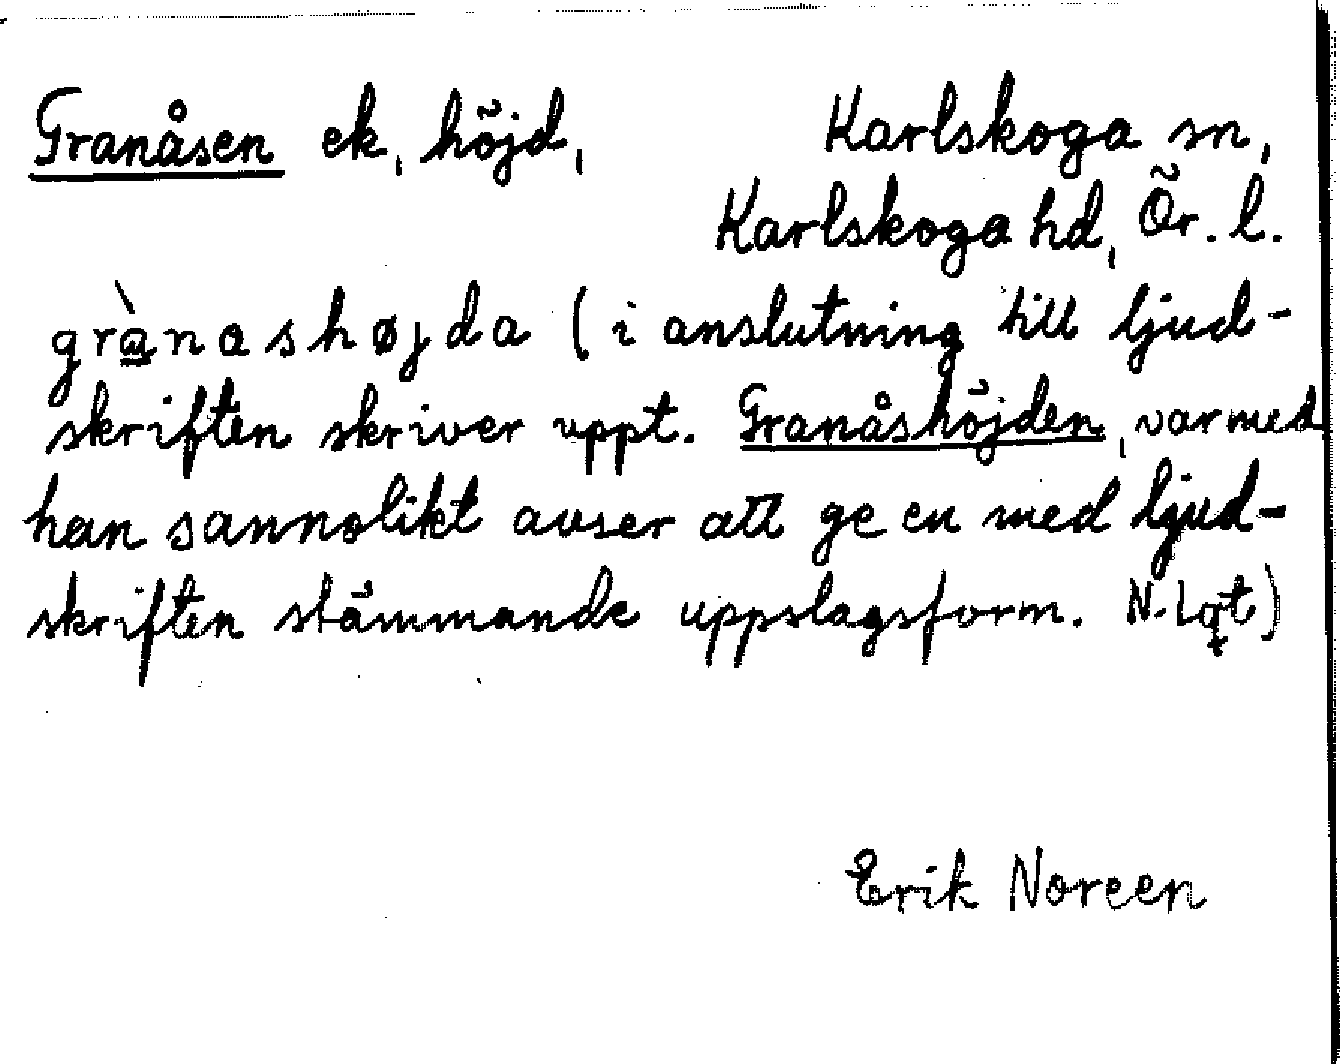 Granåsen ek, höjd, Karlskoga sn,
Karlskoga hd, Ör. l.
grànashøjda (i anslutning till ljud-
skriften skriver uppt. Granåshöjden, varmed
han sannolikt avser att ge en med ljud-
skriften stämmande uppslagsform. N. Lgt)
Erik Noreen